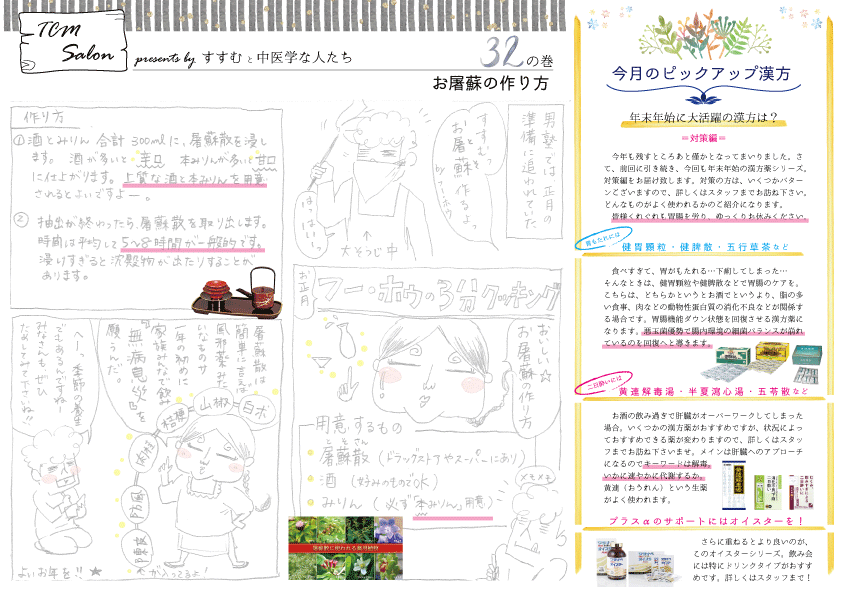 TCM
Salon
presents by すすむと中医学な人たち
32の巻
お屠蘇の作り方
男塾では正月の
準備に追われていた
すすむっ
お屠蘇を作るよっ
byフーホウ
はっはいっ
↑
大そうじ中
お正月
フー・ホウの3分クッキング
おいしい☆
お屠蘇の作り方
用意するもの
とそさん
屠蘇散(ドラッグストアやスーパーにあり)
酒(好みのものでOK)
みりん(必ず本みりん用意)
メモメモ
屠蘇散に使われる薬用植物
作り方
①酒とみりん 合計300mlに、屠蘇散を浸し
ます。 酒が多いと辛口 本みりんが多いと甘口
に仕上がります。上質な酒と本みりんを用意
されるとよいですよー。
② 抽出が終わったら、屠蘇散を取り出します。
時間は平均して5〜8時間が一般的です。
浸けすぎると沈殿物が出たりすることが
あります。
屠蘇散は
簡単に言えば
風邪薬みた
いなものサ
一年の初めに
家族みなで飲み
『無病息災』を
願うんだ。
白朮
山椒
桔梗
肉桂
防風
が入ってるよ!
へー!季節の養生
でもあるんですねー
みなさんも、ぜひ
ためしてみて下さいね!!
よいお年を!!★
今月のピックアップ漢方
年末年始に大活躍の漢方は?
=対策編=
今年も残すところあと僅かとなってまいりました。さ
て、前回に引き続き、今回も年末年始の漢方薬シリーズ。
対策編をお届け致します。対策の方は、いくつかパター
ンございますので、詳しくはスタッフまでお訪ね下さい。
どんなものがよく使われるかのご紹介になります。
皆様くれぐれも胃腸を労り、ゆっくりお休みください。
胃もたれには
健胃顆粒・健脾散・五行草茶など
食べすぎて、胃がもたれる…下痢してしまった…
そんなときは、健胃顆粒や健脾散などで胃腸のケアを。
こちらは、どちらかというとお酒でというより、脂の多
い食事、肉などの動物性蛋白質の消化不良などが関係す
る場合です。胃腸機能ダウン状態を回復させる漢方薬に
なります。悪玉菌優勢で腸内環境の細菌バランスが崩れ
ているのを回復へと導きます。
二日酔いには
黄連解毒湯・半夏瀉心湯・五苓散など
お酒の飲み過ぎで肝臓がオーバーワークしてしまった
場合。いくつかの漢方薬がおすすめですが、状況によっ
ておすすめできる薬が変わりますので、詳しくはスタッ
フまでお訪ね下さいませ。メインは肝臓へのアプローチ
になるのでキーワードは解毒。
いかに速やかに代謝するか。
黄連(おうれん)という生薬
がよく使われます。
プラスαのサポートにはオイスターを!
さらに重ねるとより良いのが、
このオイスターシリーズ。飲み会
には特にドリンクタイプがおすす
めです。詳しくはスタッフまで!